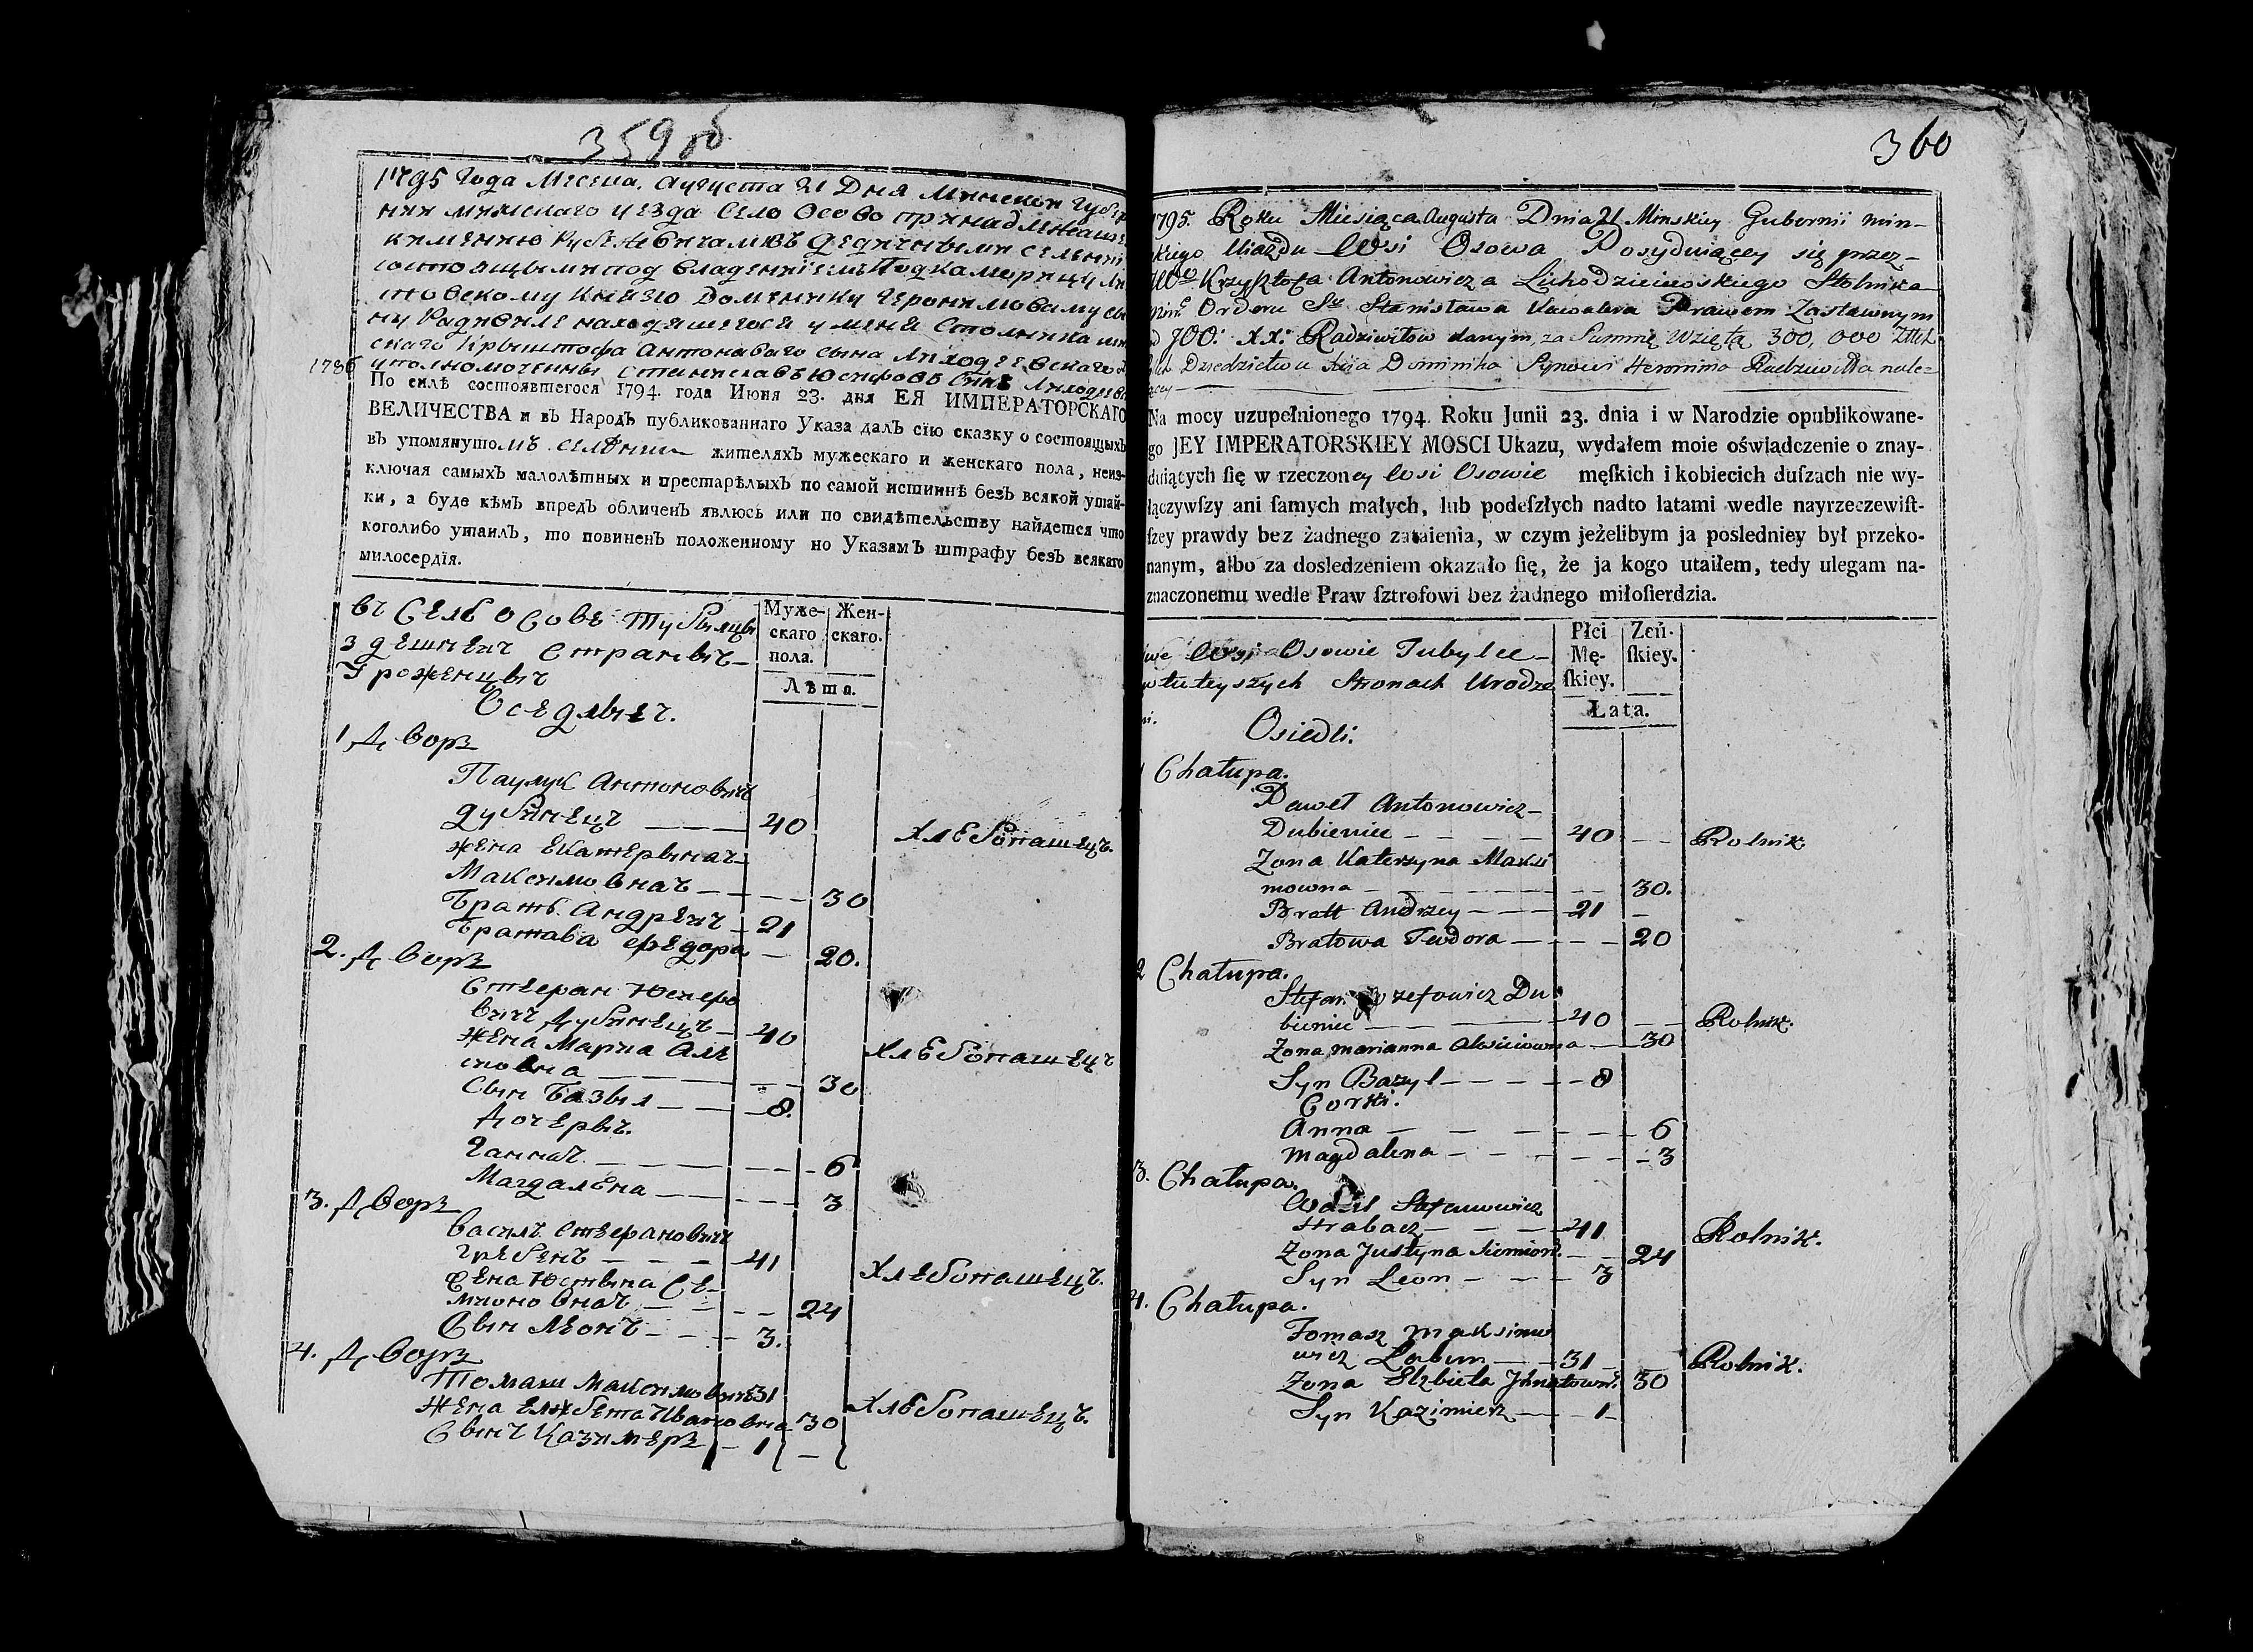 359 об
1795 Года Месяца Августа 21 Дня Минской Губер
нии минскаго уезда Село Осово принадлежаще
состоящыми под владениемъ Подкаморицу Ли
товскому Князю Доминику Геронимовому сы
ну Радивиле находящегося у меня Столника
скаго Крыштофа Антоноваго сына
1786
По силѣ состоявшегося 1794. года Июня 23. дня ЕЯ ИМПЕРАТОРСКАГО
ВЕЛИЧЕСТВА и въ Народъ публикованнаго Указа далъ сїю сказку о состоящыхъ
въ упомянутомъ селѣнии жителяхъ мужескаго и женскаго пола, неиз-
ключая самыхъ малолѣтныхъ и престарѣлыхъ по самой истиннѣ безъ всякой утай-
ки, а буде кѣмъ впредъ обличенъ явлюсь или по свидѣтельству найдется что
коголибо утаилъ, то повиненъ положенному по Указамъ штрафу безъ всякаго
милосердїя.
Муже-
скаго
пола.
Жен-
скаго.
Лѣта.
въ Селѣ Осовѣ Тубылцы
здешнеич странвъ
Урожэнцыч
Оседлыеч.
1 Дворъ
Паулук Антоновичъ
дубинецъ — — 40 Хлебопашецъ.
жена Екатерынач
Максимовнач — — 30
Братъ Андреич — 21
Братава Федора — 20.
2. Дворъ
Стефан Юсифо
вич Дубинецъ — 40
жена Мариа Але
Хлебопашецъ
— — 30
Сын Базыл — — 8.
Дочерыч.
Ганнач — — 6
Магдалена — — 3
3. Дворъ
Васил Стефанович
Гребенъ — — 41
Жена Юстына Се-
Хлебопашецъ.
мионовнач — — 24
Сын Леонъ — — 3.
4. Дворъ
Томаш Максимович 31
Жена Елжбета Ивановна 30 Хлебопашецъ.
Сынч Казимеръ — 1 —
360
1795. Roku Miesiąca Augusta Dnia 21 Minskiey Gubernii min-
skiego Uiazdu Wsi Osowa Posyduiącey się przez
Krzysztofa Antonowicza Lichodziiewskiego Stolnika
Orderu S° Stanisława Kawalera Prawem Zastawnym
od JOO: XX: Radziwiłow danym, za Summę wziętą 300,000 Złtch
Dziedzictwu Xcia Dominika Synowi Heronima Radziwiłła nale-
żącey
Na mocy uzupełnionego 1794. Roku Junii 23. dnia i w Narodzie opublikowane-
go JEY IMPERATORSKIEY MOSCI Ukazu, wydałem moie oświadczenie o znay-
duiących ſię w rzeczoney Wsi Osowie męſkich i kobiecich duſzach nie wy-
łączywſzy ani ſamych małych, lub podeſzłych nadto latami wedle nayrzeczewiſt-
ſzey prawdy bez żadnego zataienia, w czym jeżelibym ja posledniey był przeko-
nanym, albo za dosledzeniem okazało ſię, że ja kogo utaiłem, tedy ulegam na-
znaczonemu wedle Praw ſztrofowi bez żadnego miłoſierdzia.
Płci
Mę-
ſkiey.
Zeń-
ſkiey.
Łata.
we Wsi Osowie Tubylce
w tuteyszych Stronach Urodze
ni.
Osiedli.
1 Chałupa.
Paweł Antonowicz
Dubieniec — — 40 — Rolnik.
Zona Katerzyna Maksi
mowna — — 30.
Bratt Andrzey — — 21 —
Bratowa Teodora — — 20
2 Chałupa.
Stefan Jozefowicz Du
bieniec — — 40 — Rolnik.
Zona Marianna — — 30
Syn Bazyl — — 8
Corki.
Anna — — 6
Magdalena — — 3
3. Chałupa.
Wasil Stefanowicz
Hrabacz — — 41 Rolnik.
Zona Justyna Siemion. — — 24
Syn Leon — — 3
4. Chałupa.
Tomasz Maksimo
wicz Labun — — 31 Rolnik.
Zona Elzbieta Jhnatown. 30
Syn Kazimierz — — 1 —